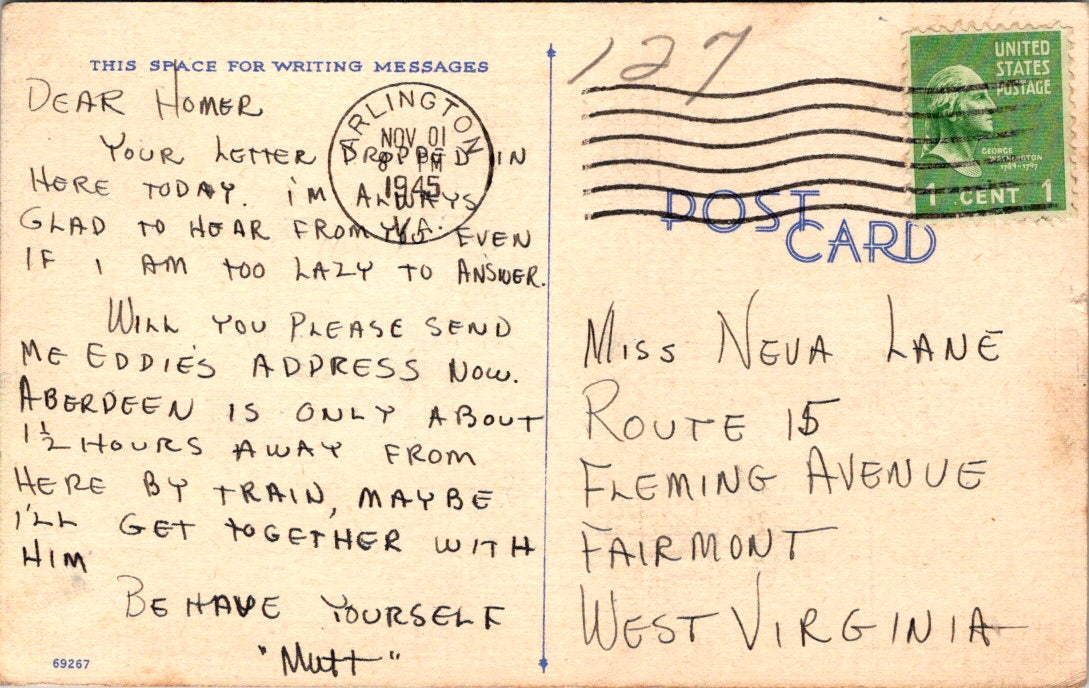 THIS SPACE FOR WRITING MESSAGES
DEAR HOMER
YOUR LETTER DROPPED IN
HERE TODAY. I'M ALWAYS
GLAD TO HEAR FROM YOU EVEN
IF I AM TOO LAZY TO ANSWER.
WILL YOU PLEASE SEND
ME EDDIE'S ADDRESS NOW.
ABERDEEN IS ONLY ABOUT
1½ HOURS AWAY FROM
HERE BY TRAIN, MAYBE
I'LL GET TOGETHER WITH
HIM
BEHAVE YOURSELF
"Mutt"
69267
ARLINGTON
NOV 01
8 PM
1945
VA.
127
UNITED
STATES
POSTAGE
GEORGE
WASHINGTON
1789-1797
1 CENT 1
POST
CARD
MISS NEVA LANE
ROUTE 15
FLEMING AVENUE
FAIRMONT
WEST VIRGINIA